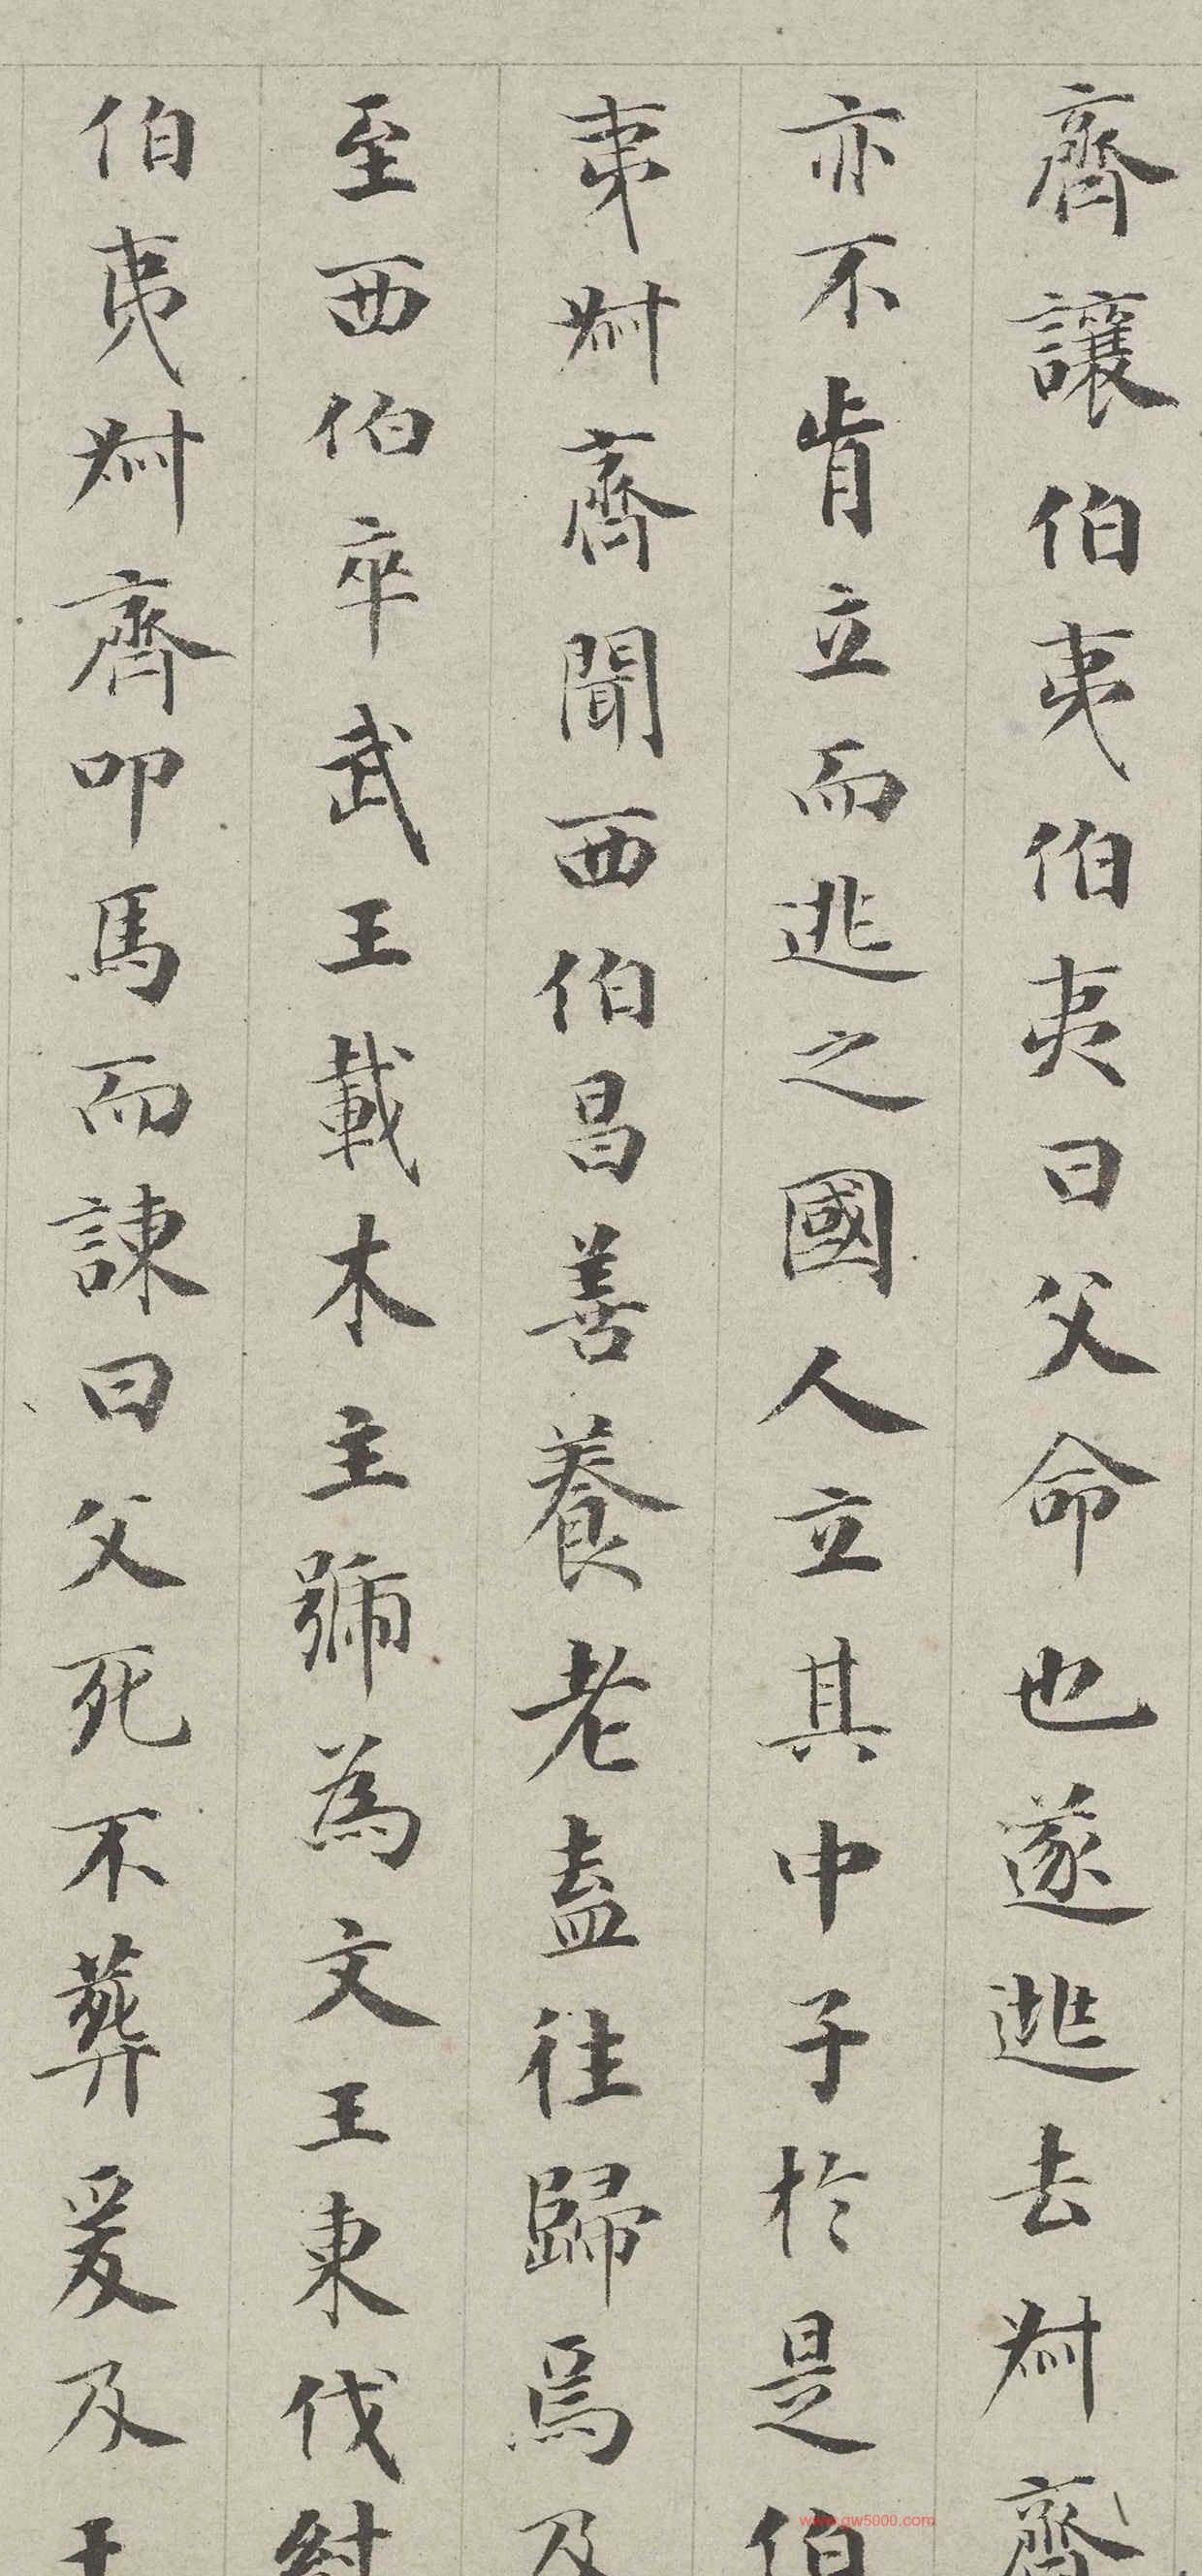 齊讓伯夷伯夷曰父命也遂逃去叔齊
亦不肯立而逃之國人立其中子於是伯
夷叔齊聞西伯昌善養老盍往歸焉及
至西伯卒武王載木主號為文王東伐紂
伯夷叔齊叩馬而諫曰父死不葬爰及干
www.gw5000.com